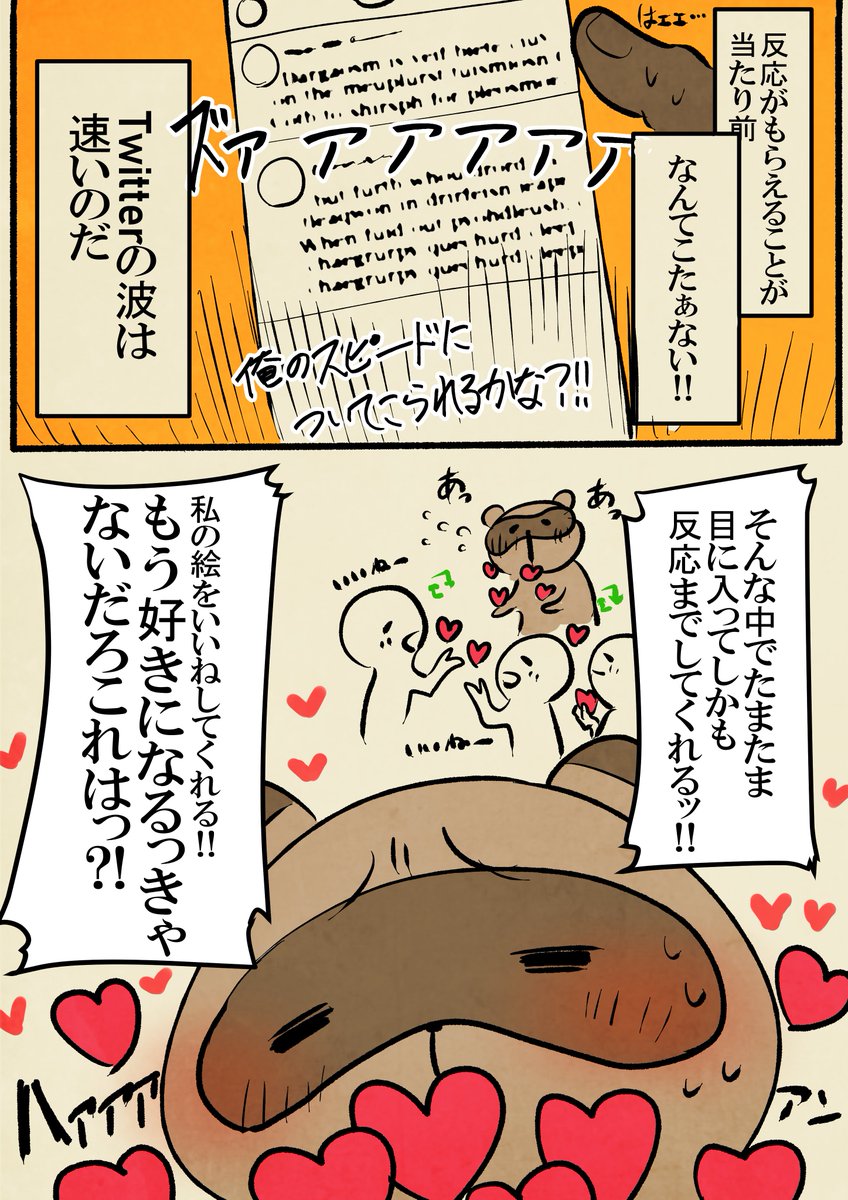 反応がもらえることが
当たり前
なんてこたぁない!!
はェェ…
ズァァァァァァ
Twitterの波は
速いのだ
俺のスピードに
ついてこられるかな?!!
そんな中でたまたま
目に入ってしかも
反応までしてくれるッ!!
あっ
あっ
いいねー
いいねー
私の絵をいいねしてくれる!!
もう好きになるっきゃ
ないだろこれはっ?!
ハァァァ
アン